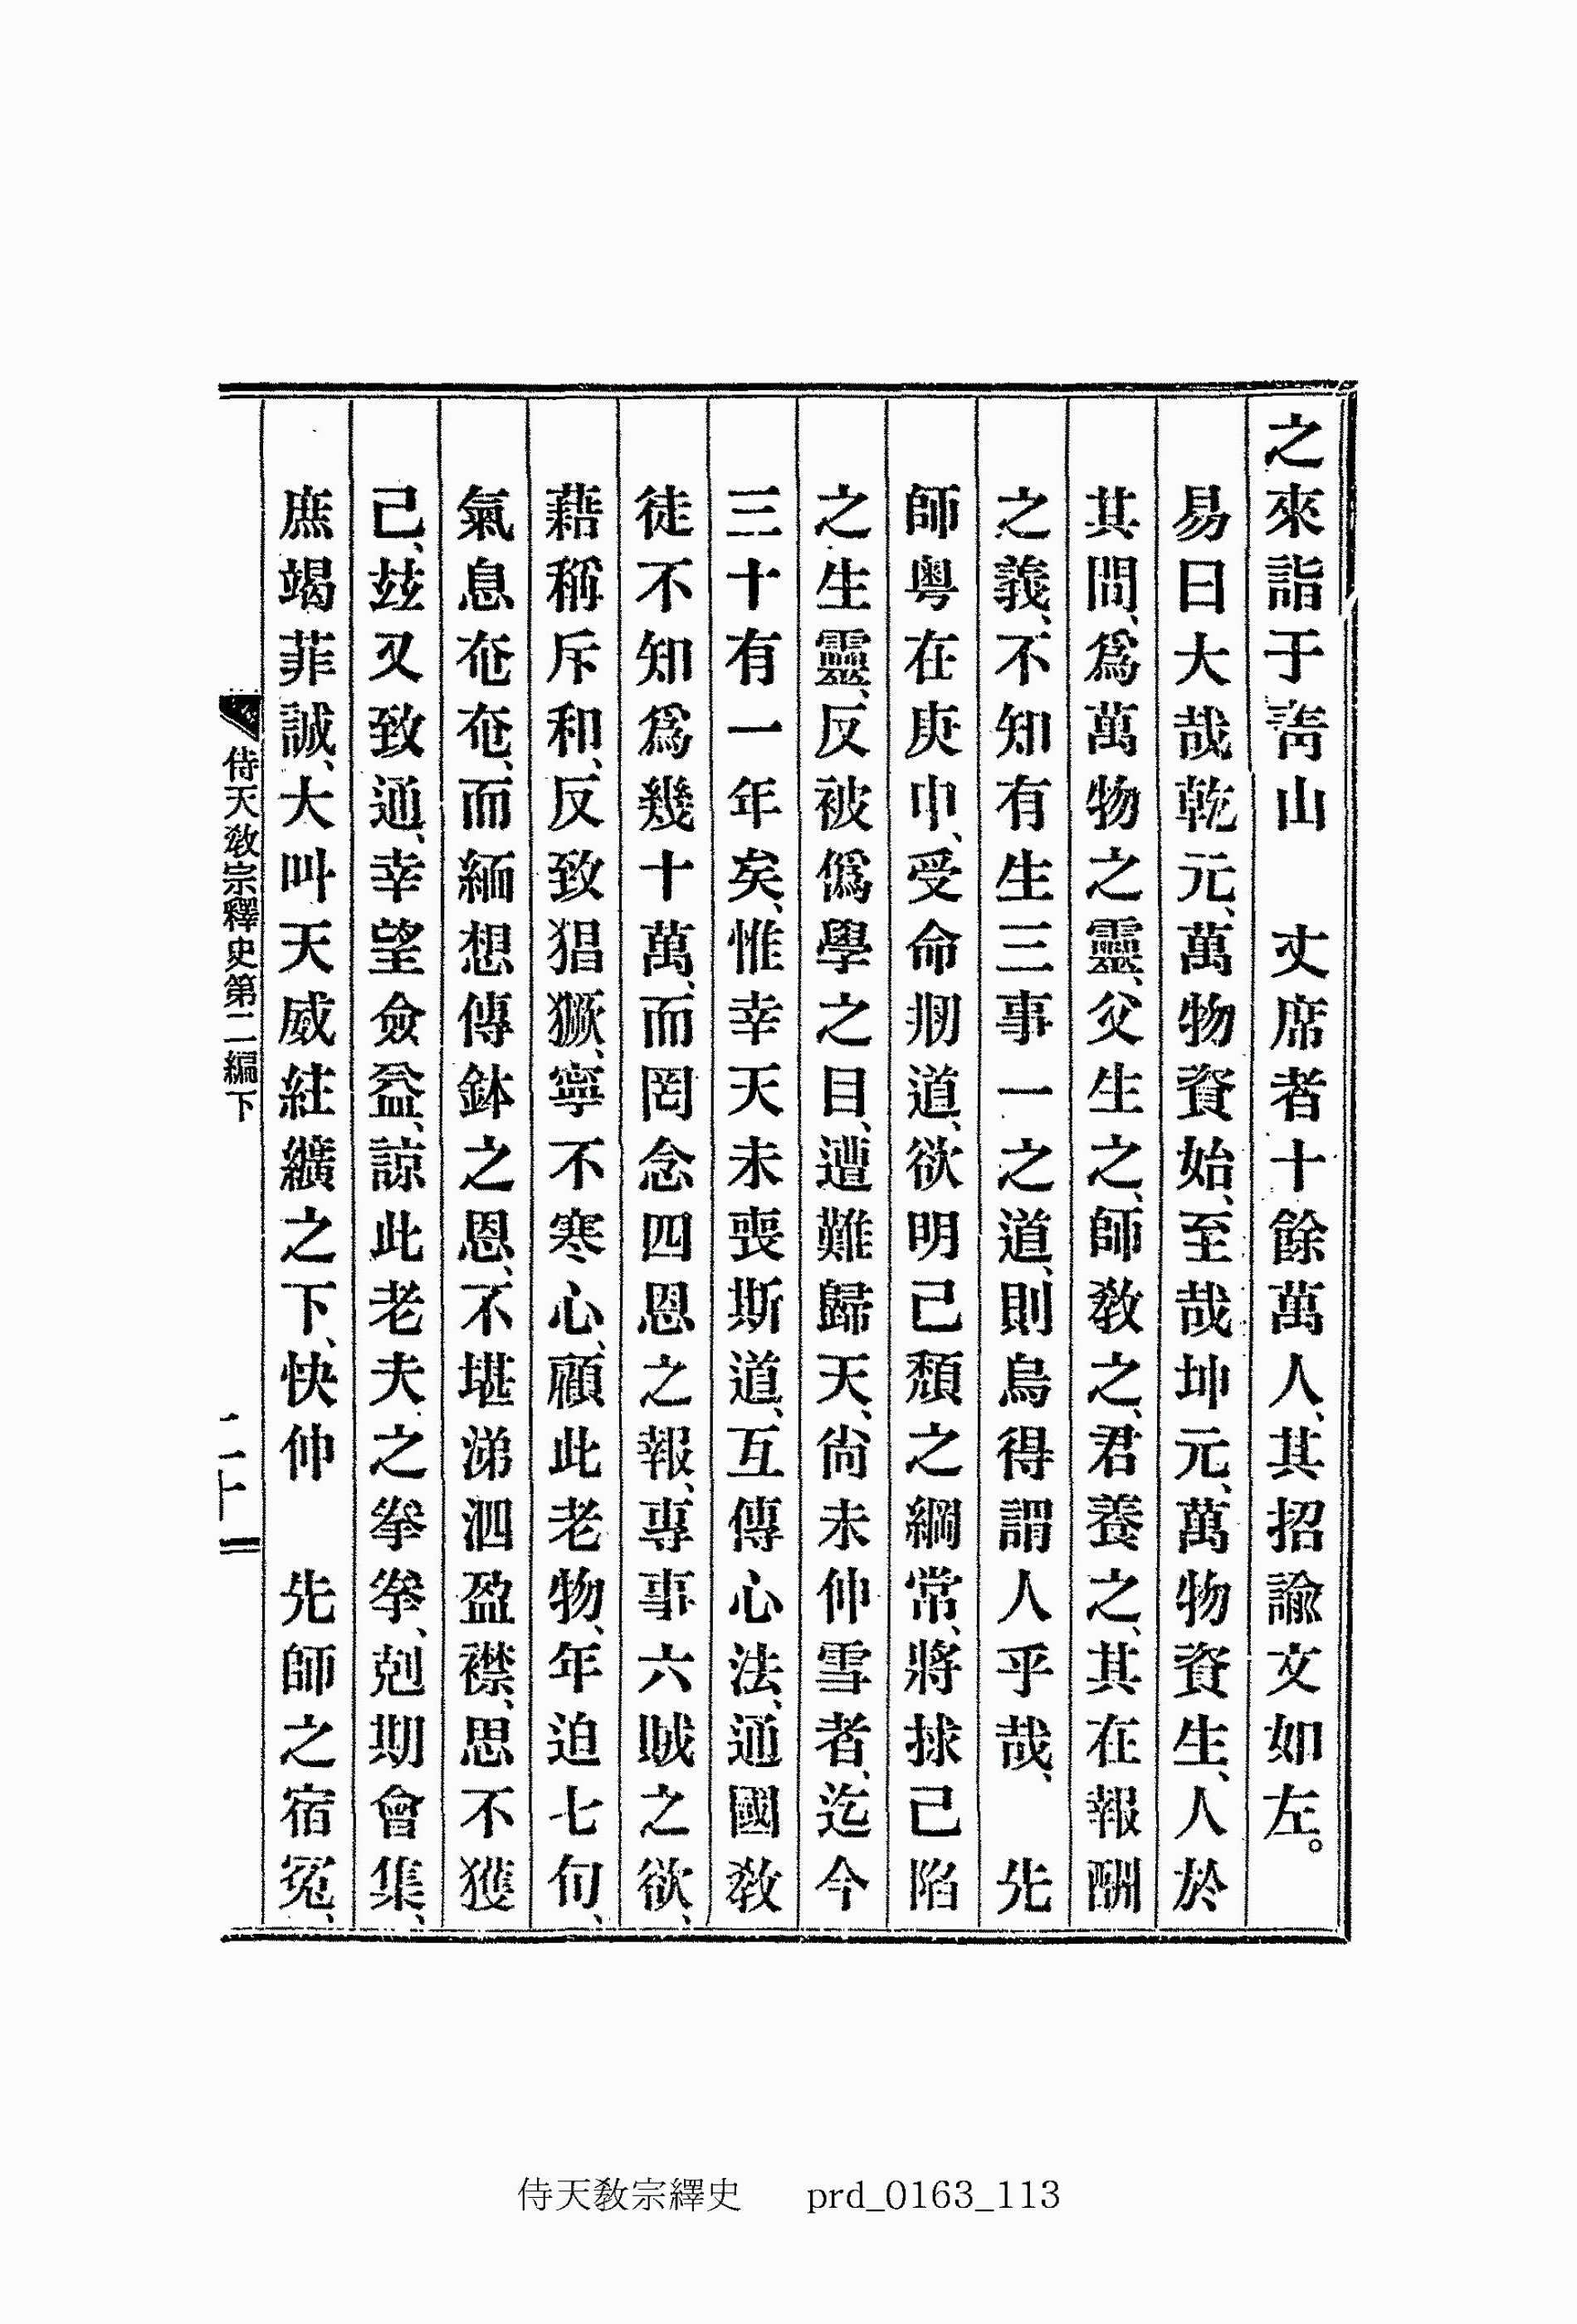 之來詣于靑山　丈席者十餘萬人、其招諭文如左。
易曰大哉乾元、萬物資始、至哉坤元、萬物資生、人於
其間、爲萬物之靈、父生之、師敎之、君養之、其在報酬
之義、不知有生三事一之道、則烏得謂人乎哉、　先
師粤在庚申、受命刱道、欲明已頹之綱常、將捄已陷
之生靈、反被僞學之目、遭難歸天、尙未伸雪者、迄今
三十有一年矣、惟幸天未喪斯道、互傳心法、通國敎
徒不知爲幾十萬、而罔念四恩之報、專事六賊之欲、
藉稱斥和、反致猖獗、寧不寒心、顧此老物、年迫七旬、
氣息奄奄、而緬想傳鉢之恩、不堪涕泗盈襟、思不獲
已、玆又致通、幸望僉益、諒此老夫之拳拳、剋期會集、
庶竭菲誠、大叫天威紸纊之下、快伸　先師之宿冤、
侍天敎宗釋史第二編下
二十一
侍天敎宗繹史　prd_0163_113